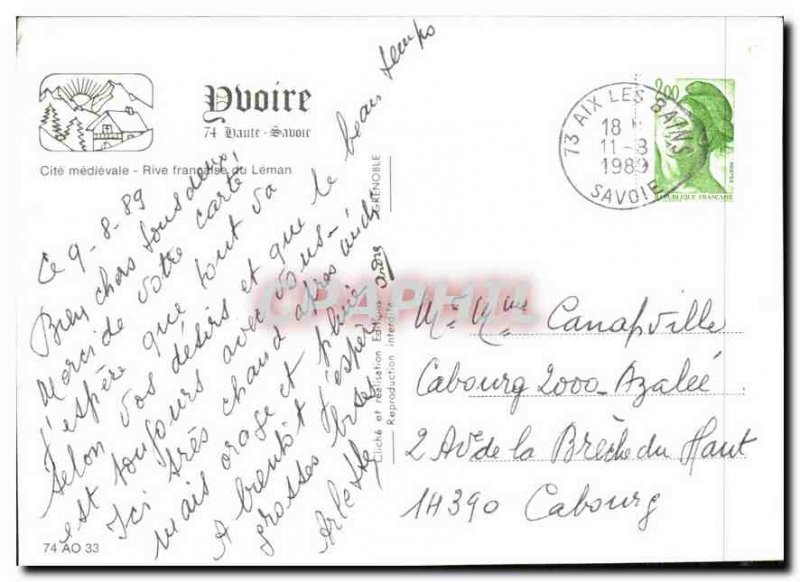 Yvoire
74 Haute-Savoie
Cité médiévale - Rive française du Léman
Ce 9-8-89
Bien chers tous deux
Merci de votre carte
J'espère que tout va
selon vos désirs et que le beau temps
est toujours avec vous-
Ici très chaud après midi
mais orage et pluie
A bientôt j'espère
grosses bises
Arlette
74 AO 33
Cliché et réalisation Editions André GRENOBLE
Reproduction interdite
73 AIX LES BAINS
18 H
11-8
1989
SAVOIE
2,00
REPUBLIQUE FRANÇAISE
POSTES
CPAPHIL
Mr Mme Canapville
Cabourg 2000-Azalée
2 Av de la Brèche du Haut
14390 Cabourg